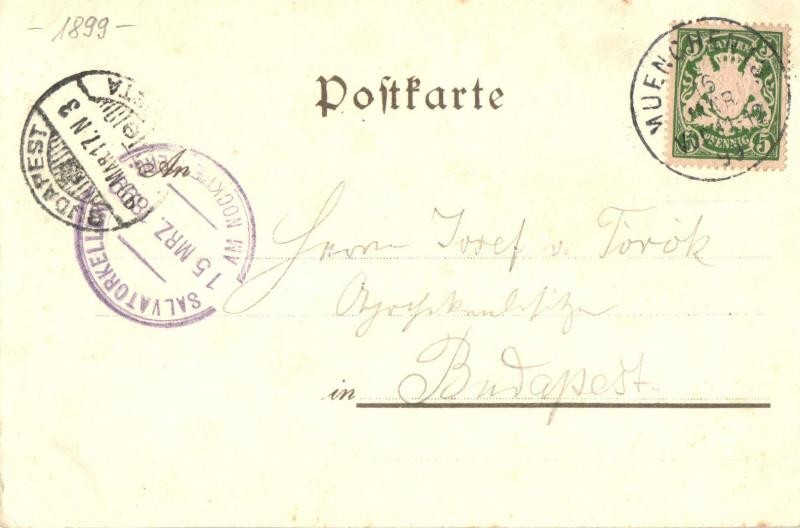 -1899-
BAYERN
5 5
PFENNIG
MUENCHEN
Postkarte
BUDAPEST
899 MAR 17. N 3
SALVATORKELLER AM NOCKHERBERG
15 MRZ. 1899
An
Herrn Josef v. Török
Apothekenbesitzer
in Budapest